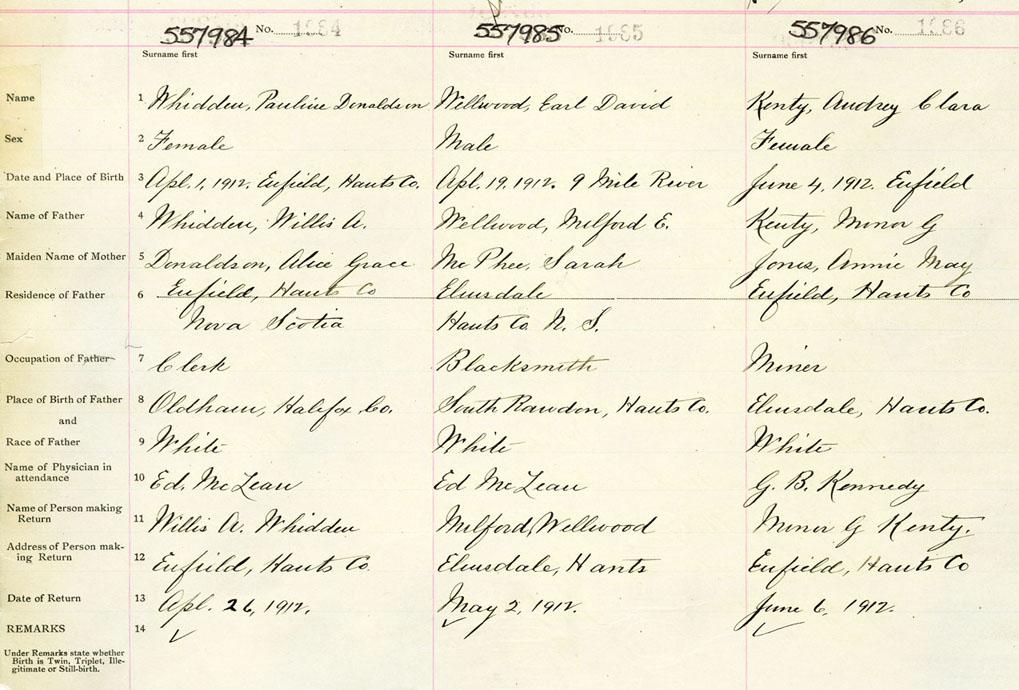 557984 No. 1984 557985 No. 1985 557986 No. 1986
Surname first Surname first Surname first
Name 1 Whidden, Pauline Donaldson Wellwood, Earl David Kenty, Audrey Clara
Sex 2 Female Male Female
Date and Place of Birth 3 Apl. 1, 1912. Enfield, Hants Co. Apl. 19, 1912. 9 Mile River June 4, 1912. Enfield
Name of Father 4 Whidden, Willis A. Wellwood, Milford E. Kenty, Minor G
Maiden Name of Mother 5 Donaldson, Alice Grace McPhee, Sarah Jones, Annie May
Residence of Father 6 Enfield, Hants Co Elmsdale Enfield, Hants Co
Nova Scotia Hants Co N. S.
Occupation of Father 7 Clerk Blacksmith Miner
Place of Birth of Father 8 Oldham, Halifax Co. South Rawdon, Hants Co. Elmsdale, Hants Co.
and
Race of Father 9 White White White
Name of Physician in
attendance 10 Ed. McLean Ed McLean G. B. Kennedy
Name of Person making
Return 11 Willis A. Whidden Milford Wellwood Minor G Kenty.
Address of Person mak-
ing Return 12 Enfield, Hants Co Elmsdale, Hants Enfield, Hants Co
Date of Return 13 Apl. 26, 1912. May 2, 1912. June 6, 1912.
REMARKS 14 ✓ ✓ ✓
Under Remarks state whether
Birth is Twin, Triplet, Ille-
gitimate or Still-birth.